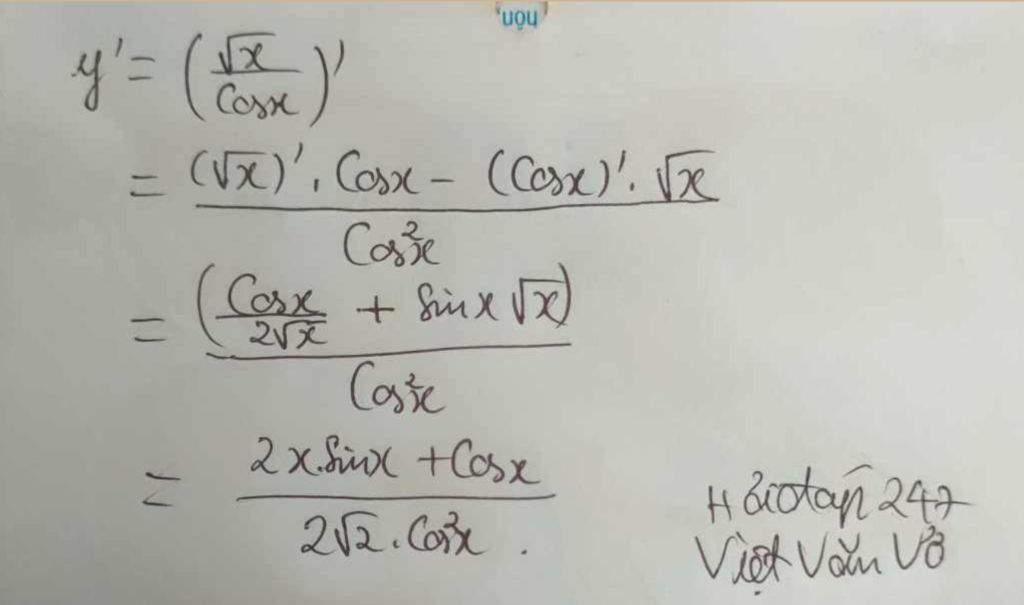 nộn.
y' = (√x / Cosx)'
= ((√x)' . Cosx - (Cosx)' . √x) / Cos²x
= (Cosx / 2√x + Sinx √x) / Cos²x
= (2x.Sinx + Cosx) / (2√2 . Cos²x) .
Hỏiđáp 247
Việt Văn Vở